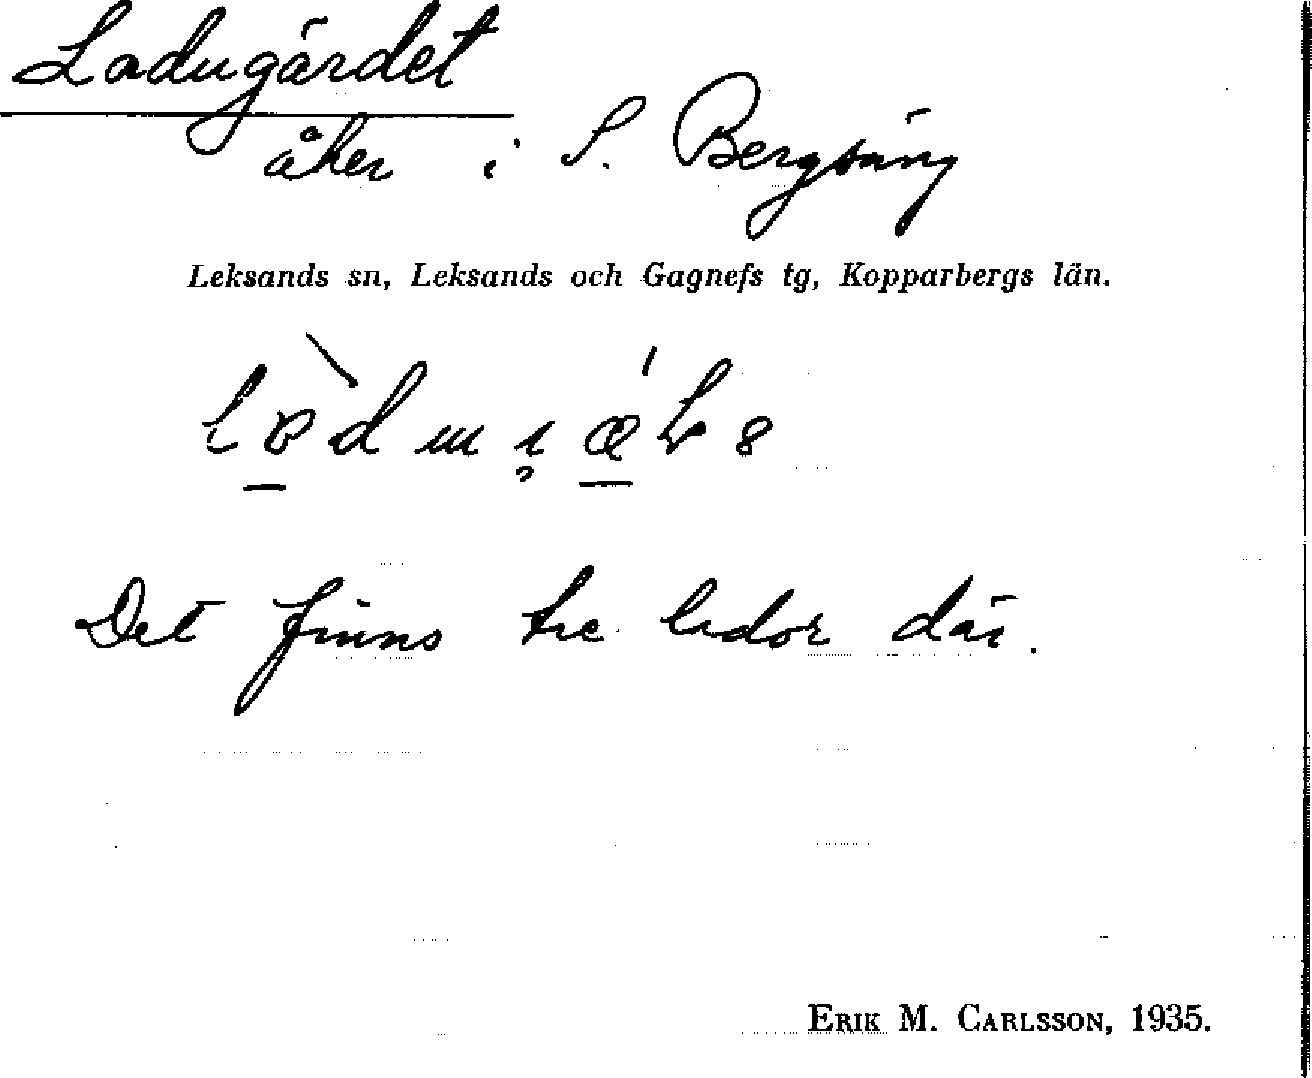 Ladugärdet
åker i S. Bergsäng
Leksands sn, Leksands och Gagnefs tg, Kopparbergs län.
Det finns tre lador där.
ERIK M. CARLSSON, 1935.